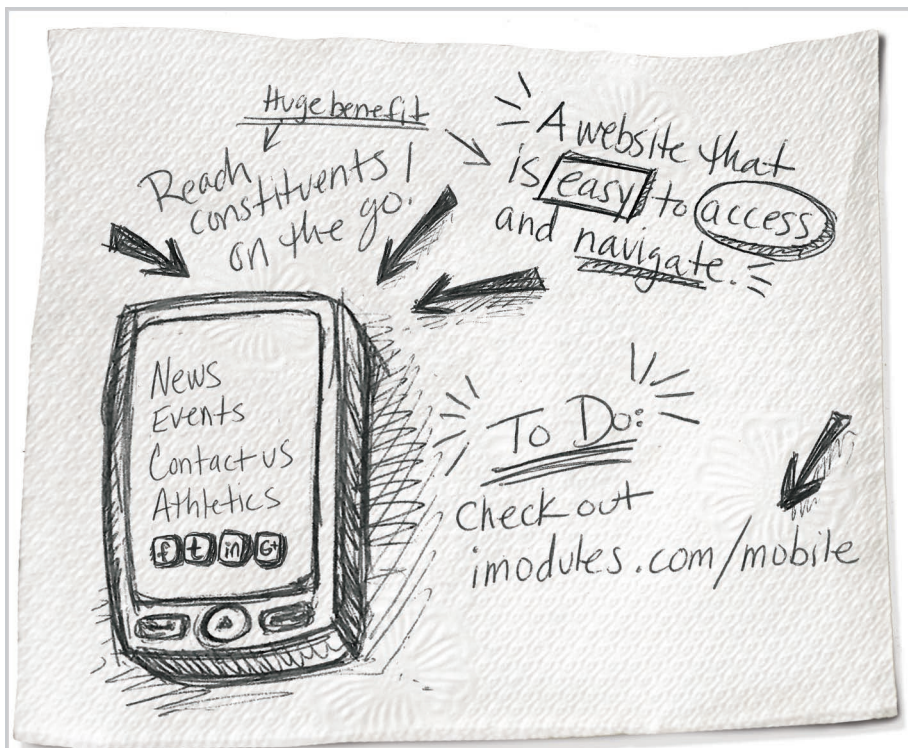 Huge benefit
Reach
constituents
on the go!
A website that
is easy to access
and navigate.
News
Events
Contact us
Athletics
f t in G+
To Do:
Check out
imodules.com/mobile